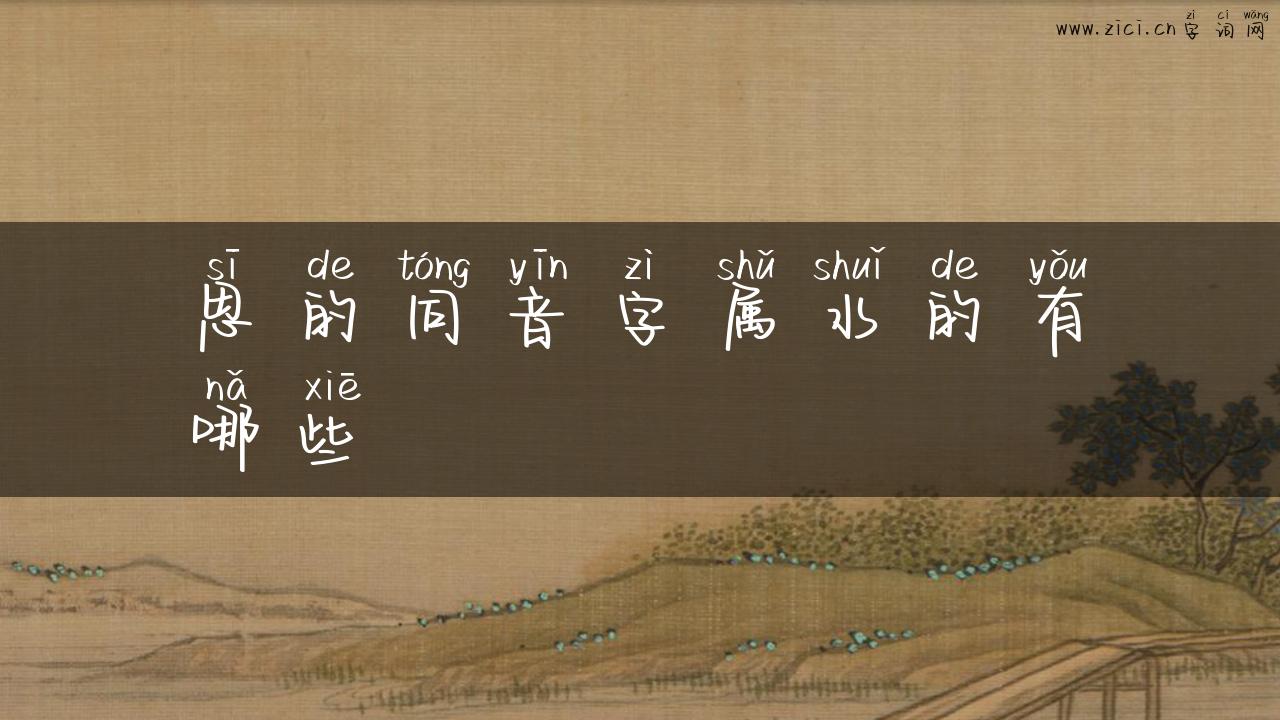 www.zici.cn zì cí wǎng
字词网
sī de tóng yīn zì shǔ shuǐ de yǒu
恩的同音字属水的有
nǎ xiē
哪些